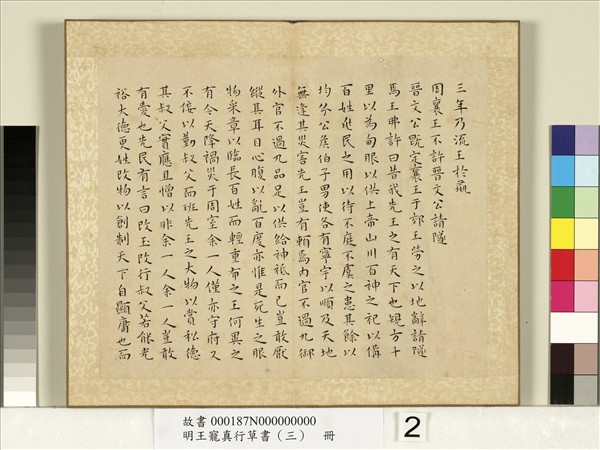 三年乃流王於彘
周襄王不許晉文公請隧
晉文公既定襄王于郟王勞之以地辭請隧
焉王弗許曰昔我先王之有天下也規方千
里以為甸服以供上帝山川百神之祀以備
百姓兆民之用以待不庭不虞之患其餘以
均分公侯伯子男使各有寧宇以順及天地
無逢其災害先王豈有賴焉內官不過九御
外官不過九品足以供給神祇而已豈敢厭
縱其耳目心腹以亂百度亦惟是死生之服
物采章以臨長百姓而輕重布之王何異之
有今天降禍災于周室余一人僅亦守府又
不佞以勤叔父而班先王之大物以賞私德
其叔父實應且憎以非余一人余一人豈敢
有愛也先民有言曰改玉改行叔父若能光
裕大德更姓改物以創制天下自顯庸也而
故書 000187N000000000
明王寵真行草書（三） 冊
2